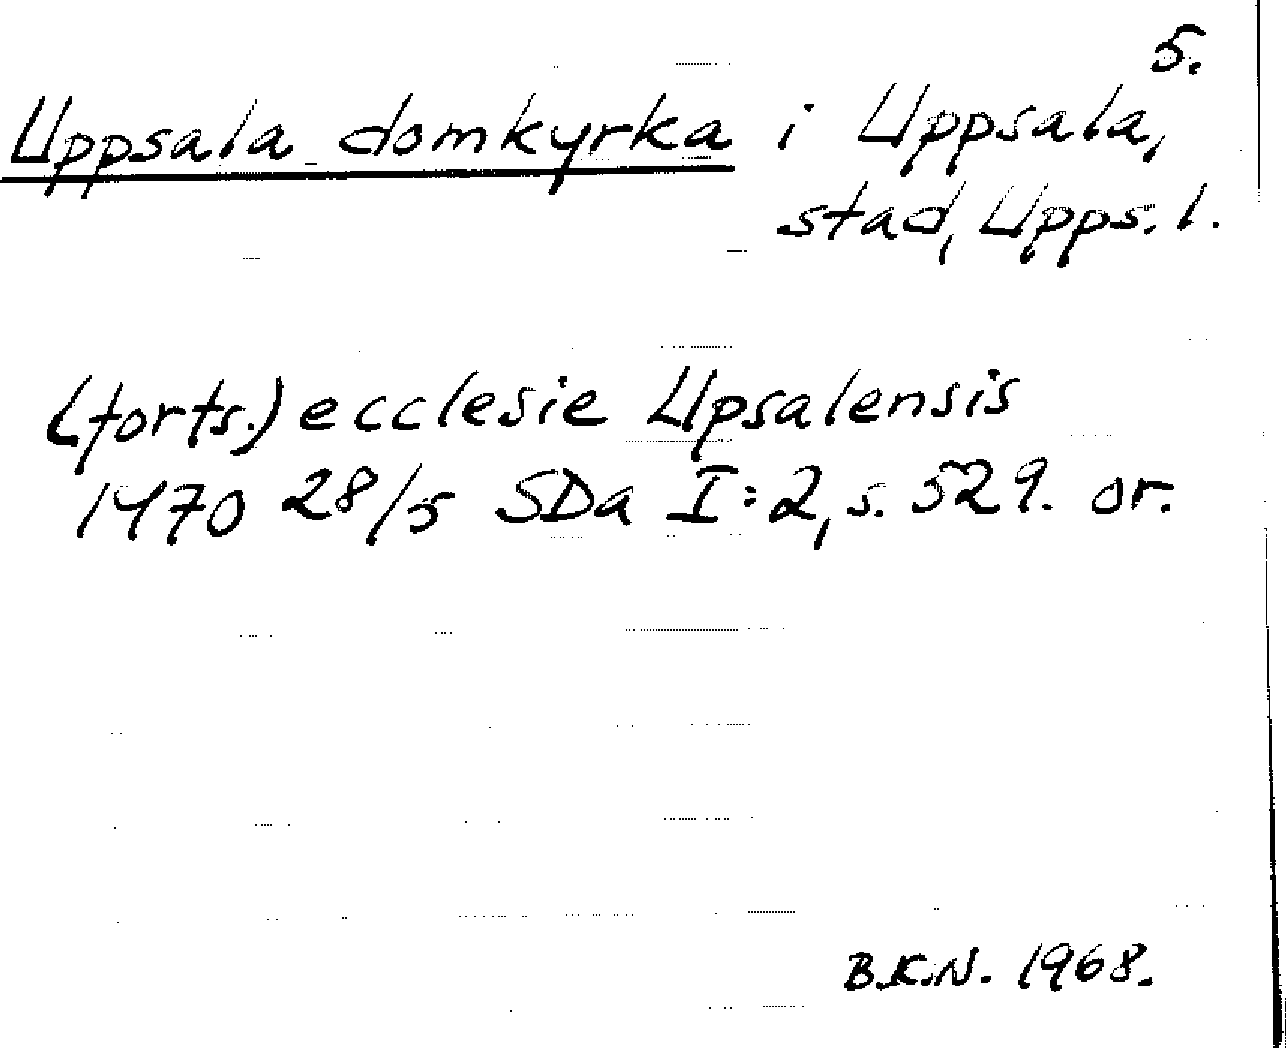 5.
Uppsala domkyrka i Uppsala,
stad, Upps. l.
(forts.) ecclesie Upsalensis
1470 28/5 SDa I:2, s. 529. or.
B.K.N. 1968.